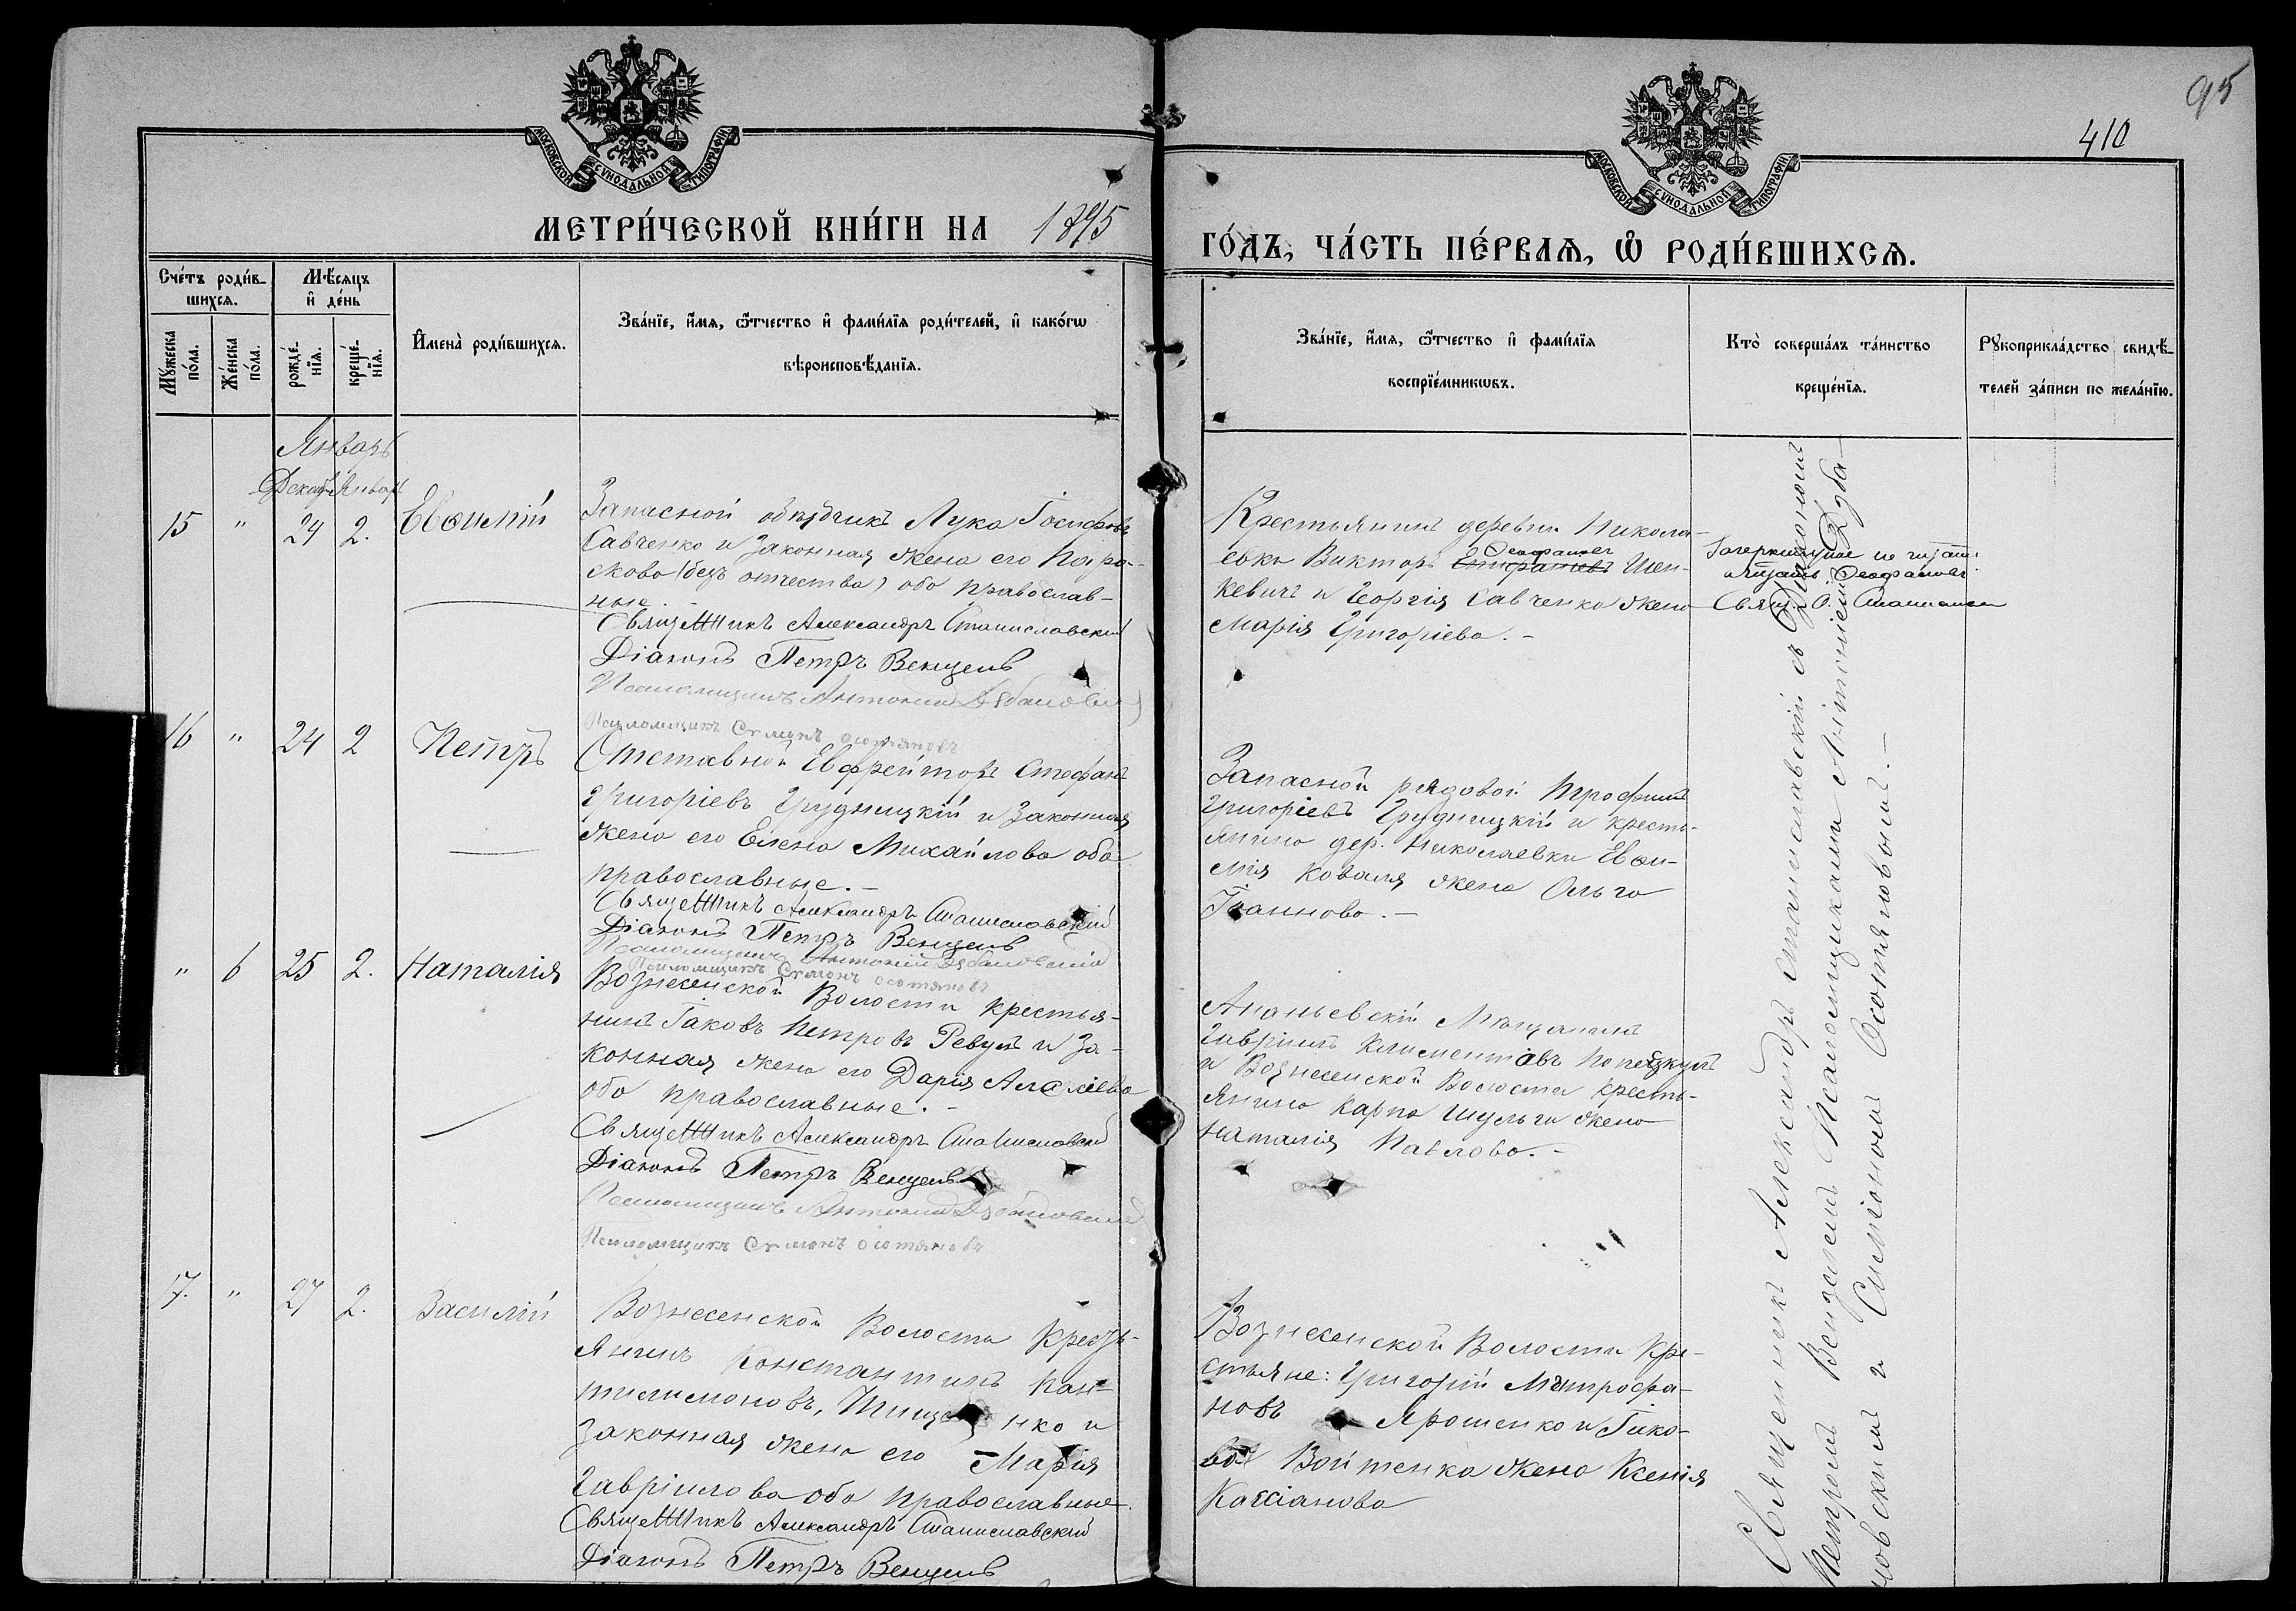 95
410
МОСКОВСКОЙ СѴНОДАЛЬНОЙ ТИПОГРАФІИ
МОСКОВСКОЙ СѴНОДАЛЬНОЙ ТИПОГРАФІИ
МЕТРИ́ЧЕСКОЙ КНИ́ГИ НА 1895
ГО́ДЪ, ЧА́СТЬ ПЕ́РВАѦ, Ѽ РОДИ́ВШИХСѦ.
Сче́тъ роди́в-
шихсѧ.
Мѣ́сѧцъ
и҆ де́нь
Мꙋ́жеска
по́ла.
Же́нска
по́ла.
рожде́-
нїѧ.
креще́-
нїѧ.
И҆мена̀ роди́вшихсѧ.
Зва́нїе, и҆́мѧ, ѻ҆́тчество и҆ фами́лїѧ роди́телей, и҆ како́гѡ
вѣроисповѣ́данїѧ.
Зва́нїе, и҆́мѧ, ѻ҆́тчество и҆ фами́лїѧ
воспрїе́мникѡвъ.
Кто̀ соверша́лъ та́инство
креще́нїѧ.
Рꙋкоприкла́дство свидѣ́-
телей за́писи по жела́нїю.
Январь
Декаб Январ
15 " 24 2. Евѳимій
Запасной объѣздчикъ Лука Іосифовъ
Савченко и законная жена его Пара-
скова (безъ отчества) оба православ-
ные.
Священникъ Александръ Станиславскій
Діаконъ Петръ Венцель
Псаломщикъ Антоній
Псаломщикъ Сѵмонъ Осотяновъ
Крестьянинъ деревни Никола-
евки Викторъ Ѳеофановъ Шен-
кевичъ и Георгія Савченко жена
Марія Григоріева. -
Зачеркнутое не читать
читать Ѳеофановъ
Свящ. А.
16 " 24 2 Петръ
Отставной Евфрейторъ Стефанъ
Григоріевъ Грудницкій и законная
жена его Елена Михайлова оба
православные. -
Священникъ Александръ Станиславскій
Діаконъ Петръ Венцель
Псаломщикъ Антоній Дзбановскій
Псаломщикъ Сѵмонъ Осотяновъ
Запасной рядовой Трофимъ
Григоріевъ Грудницкій и кресть-
янина дер. Николаевки Евѳи-
мія Коваля жена Ольга
Іоаннова. -
" 6 25 2. Наталія
Вознесенской Волости крестья-
нинъ Іаковъ Петровъ Ревуцъ и за-
конная жена его Дарія
оба православные. -
Священникъ Александръ Станиславскій
Діаконъ Петръ Венцель
Псаломщикъ Антоній Дзбановскій
Псаломщикъ Сѵмонъ Осотяновъ
Ананьевскій Мѣщанинъ
Гавріилъ Климентіевъ
и Вознесенской Волости кресть-
янина Карпа Шульги жена
Наталія Павлова. -
17. " 27 2. Василій
Вознесенской Волости Кресть-
янинъ Константинъ Пан-
тилимоновъ, Тищенко и
законная жена его Марія
Гавріилова оба православные.
Священникъ Александръ Станиславскій
Діаконъ Петръ Венцель
Вознесенской Волости Кре-
стьяне: Григорій Митрофа-
новъ Ярошенко и Іако-
ва Войтенка жена Ксенія
Кассіанова
Священникъ Александръ Станиславскій съ Діакономъ
Петромъ Венцелемъ Псаломщиками Антоніемъ Дзба-
новскимъ и Симіономъ Осотяновымъ. -